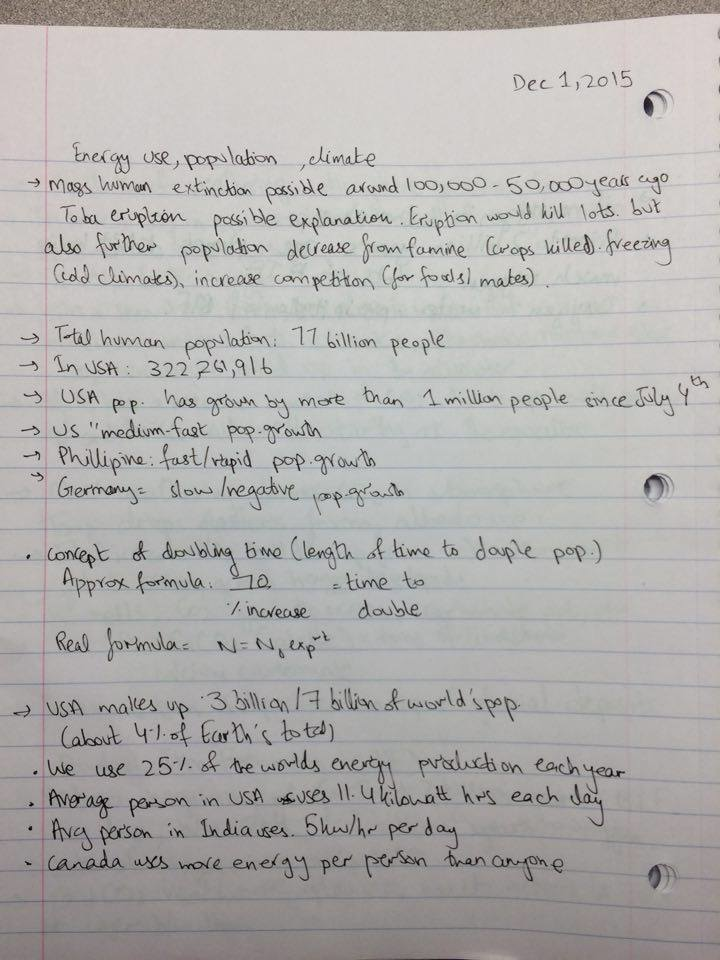 Dec 1, 2015
Energy use, population, climate
→ Mass human extinction possible around 100,000 - 50,000 years ago
Toba eruption possible explanation. Eruption would kill lots. but
also further population decrease from famine (crops killed). freezing
(cold climates), increase competition (for foods/mates).
→ Total human population: 77 billion people
→ In USA: 322,261,916
→ USA pop. has grown by more than 1 million people since July 4th
→ US "medium-fast pop. growth
→ Phillipine: fast/rapid pop. growth
→ Germany= slow/negative pop. growth
• concept of doubling time (length of time to douple pop.)
Approx formula: 70 = time to
% increase double
Real formula= N=N₀ exp
→ USA makes up .3 billion/7 billion of world's pop.
(about 4% of Earth's total)
• We use 25% of the worlds energy production each year
• Average person in USA uses 11.4 kilowatt hrs each day
• Avg person in India uses .5kw/hr per day
- Canada uses more energy per person than anyone